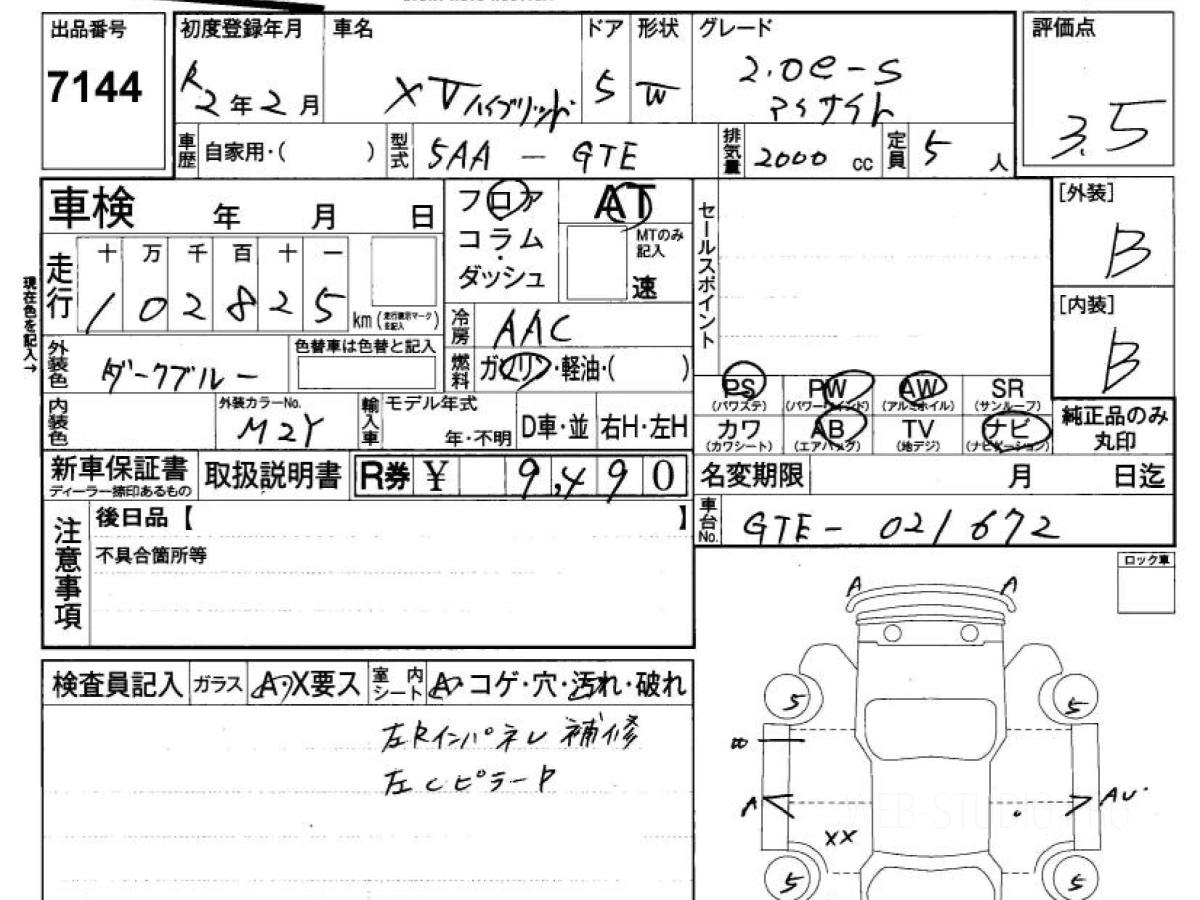 出品番号
7144
初度登録年月
R2年2月
車名
XVハイブリッド
ドア
5
形状
W
グレード
2.0e-S
アイサイト
評価点
3.5
車歴
自家用・( )
型式
5AA - GTE
排気量
2000 cc
定員
5 人
車検 年 月 日
現在色を記入→
走行
十 万 千 百 十 一
1 0 2 8 2 5
km (走行表示マークを記入)
フロア
コラム
・
ダッシュ
AT
MTのみ記入
速
セールスポイント
[外装]
B
[内装]
B
外装色
ダークブルー
色替車は色替と記入
冷房
AAC
燃料
ガソリン・軽油・( )
PS
(パワステ)
PW
(パワーウインド)
AW
(アルミホイル)
SR
(サンルーフ)
カワ
(カワシート)
AB
(エアバッグ)
TV
(地デジ)
ナビ
(ナビゲーション)
純正品のみ
丸印
内装色
外装カラーNo.
M2Y
輸入車
モデル年式
年・不明
D車・並
右H・左H
新車保証書
ディーラー捺印あるもの
取扱説明書
R券 ¥ 9,490
名変期限 月 日迄
車台No.
GTE- 021672
注意事項
後日品【 】
不具合箇所等
ロック車
検査員記入
ガラス
A・X要ス
室内シート
A・コゲ・穴・汚れ・破れ
左Rインパネレ補修
左CピラーP
A A
5 5
A AU
XX
5 5
WEB-STUDIO.PRO